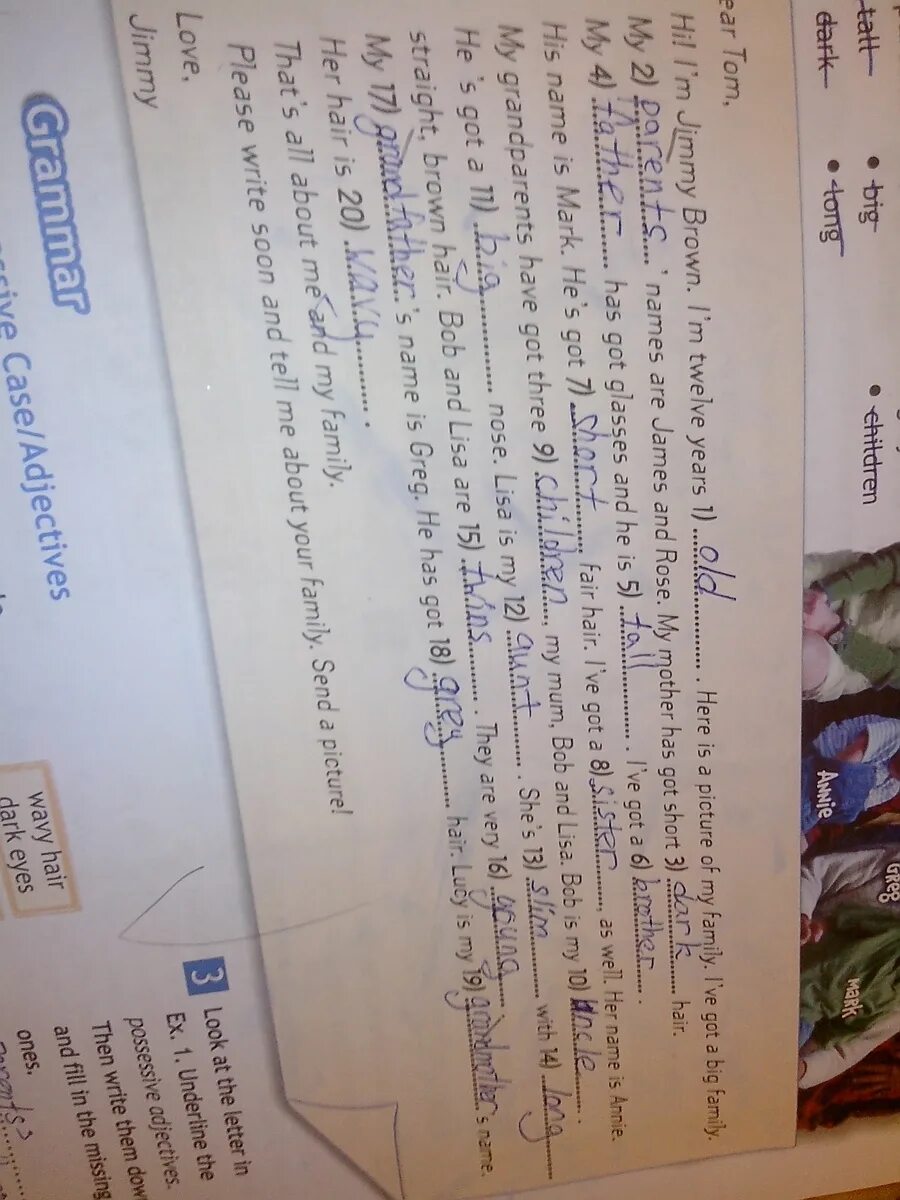 tall
• big
• children
dark
• long
Annie
Greg
Mark
ear Tom,
Hi! I'm Jimmy Brown. I'm twelve years 1) old. Here is a picture of my family. I've got a big family.
My 2) parents' names are James and Rose. My mother has got short 3) dark hair.
My 4) father has got glasses and he is 5) tall. I've got a 6) brother.
His name is Mark. He's got 7) short fair hair. I've got a 8) sister, as well. Her name is Annie.
My grandparents have got three 9) children, my mum, Bob and Lisa. Bob is my 10) uncle.
He's got a 11) big nose. Lisa is my 12) aunt. She's 13) slim with 14) long
straight, brown hair. Bob and Lisa are 15) twins. They are very 16) young.
My 17) grandfather's name is Greg. He has got 18) grey hair. Lucy is my 19) grandmother's name.
Her hair is 20) wavy.
That's all about me and my family.
Please write soon and tell me about your family. Send a picture!
Love,
Jimmy
Grammar
ssive Case/Adjectives
wavy hair
dark eyes
3 Look at the letter in
Ex. 1. Underline the
possessive adjectives.
Then write them dow
and fill in the missing
ones.